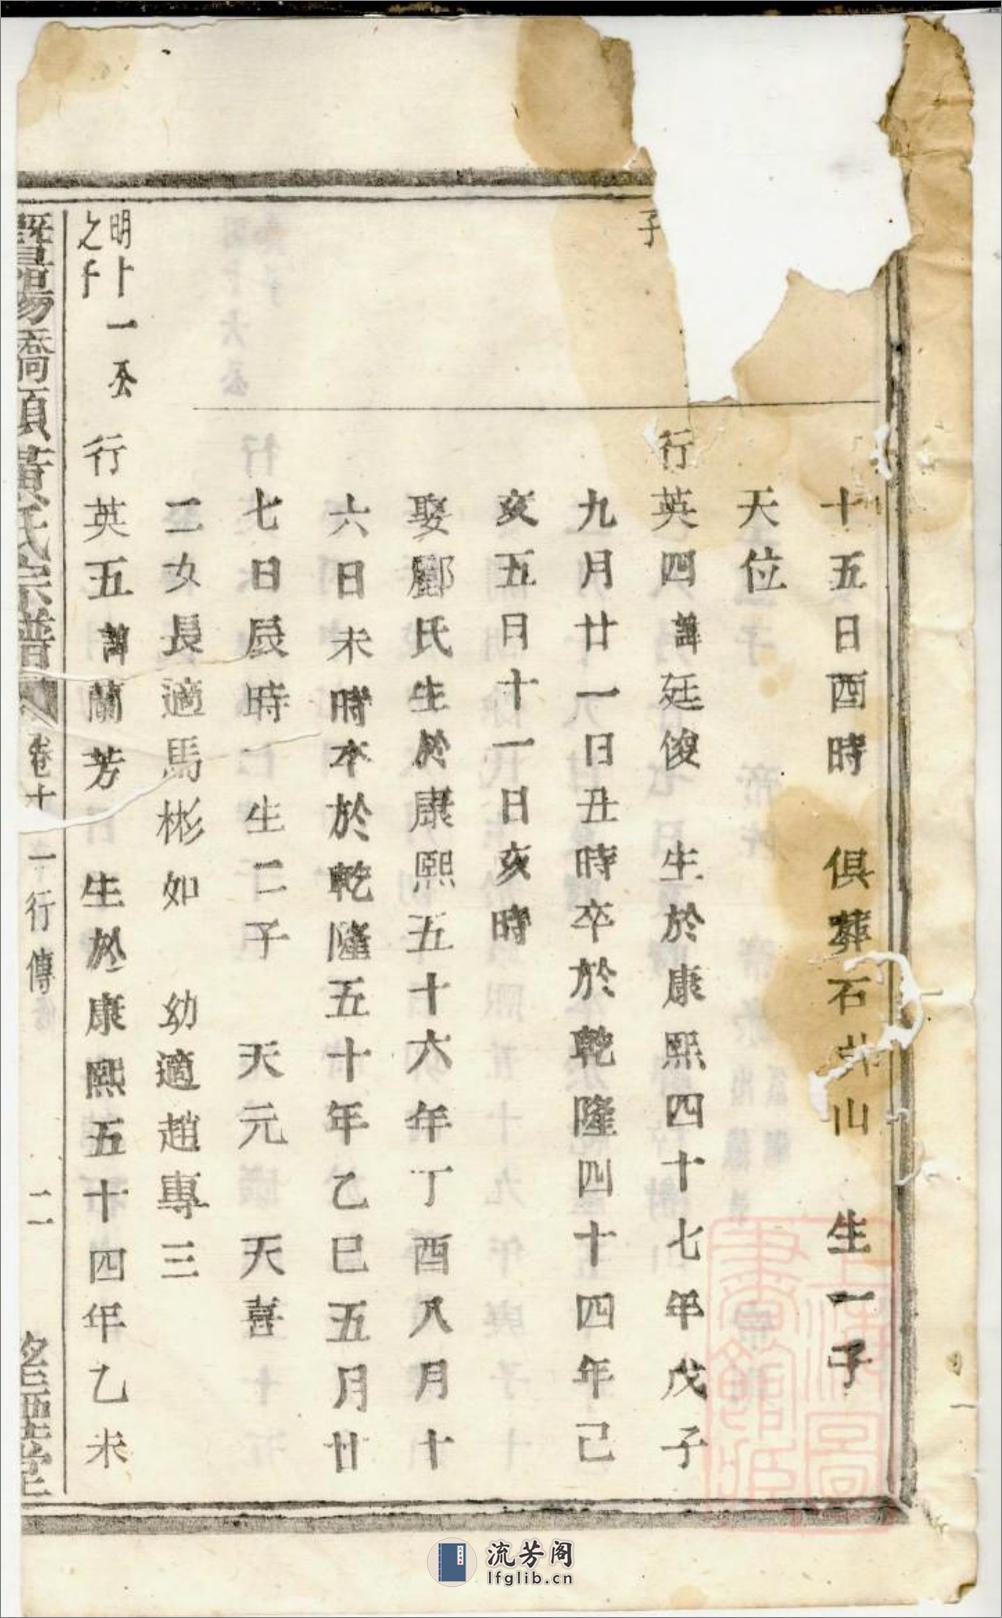 子
十五日酉時　俱葬石井山　生一子
天位
行英四諱廷俊　生於康熙四十七年戊子
九月廿一日丑時卒於乾隆四十四年己
亥五日十一日亥時
娶酈氏生於康熙五十六年丁酉八月十
六日未時卒於乾隆五十年乙巳五月廿
七日辰時巳　生二子　天元　天喜
二女長適馬彬如　幼適趙專三
明卜一公
之子
行英五諱蘭芳　生於康熙五十四年乙未
暨陽橋頭黃氏宗譜　卷十一行傳　二
上海圖書館藏
流芳阁
lfglib.cn